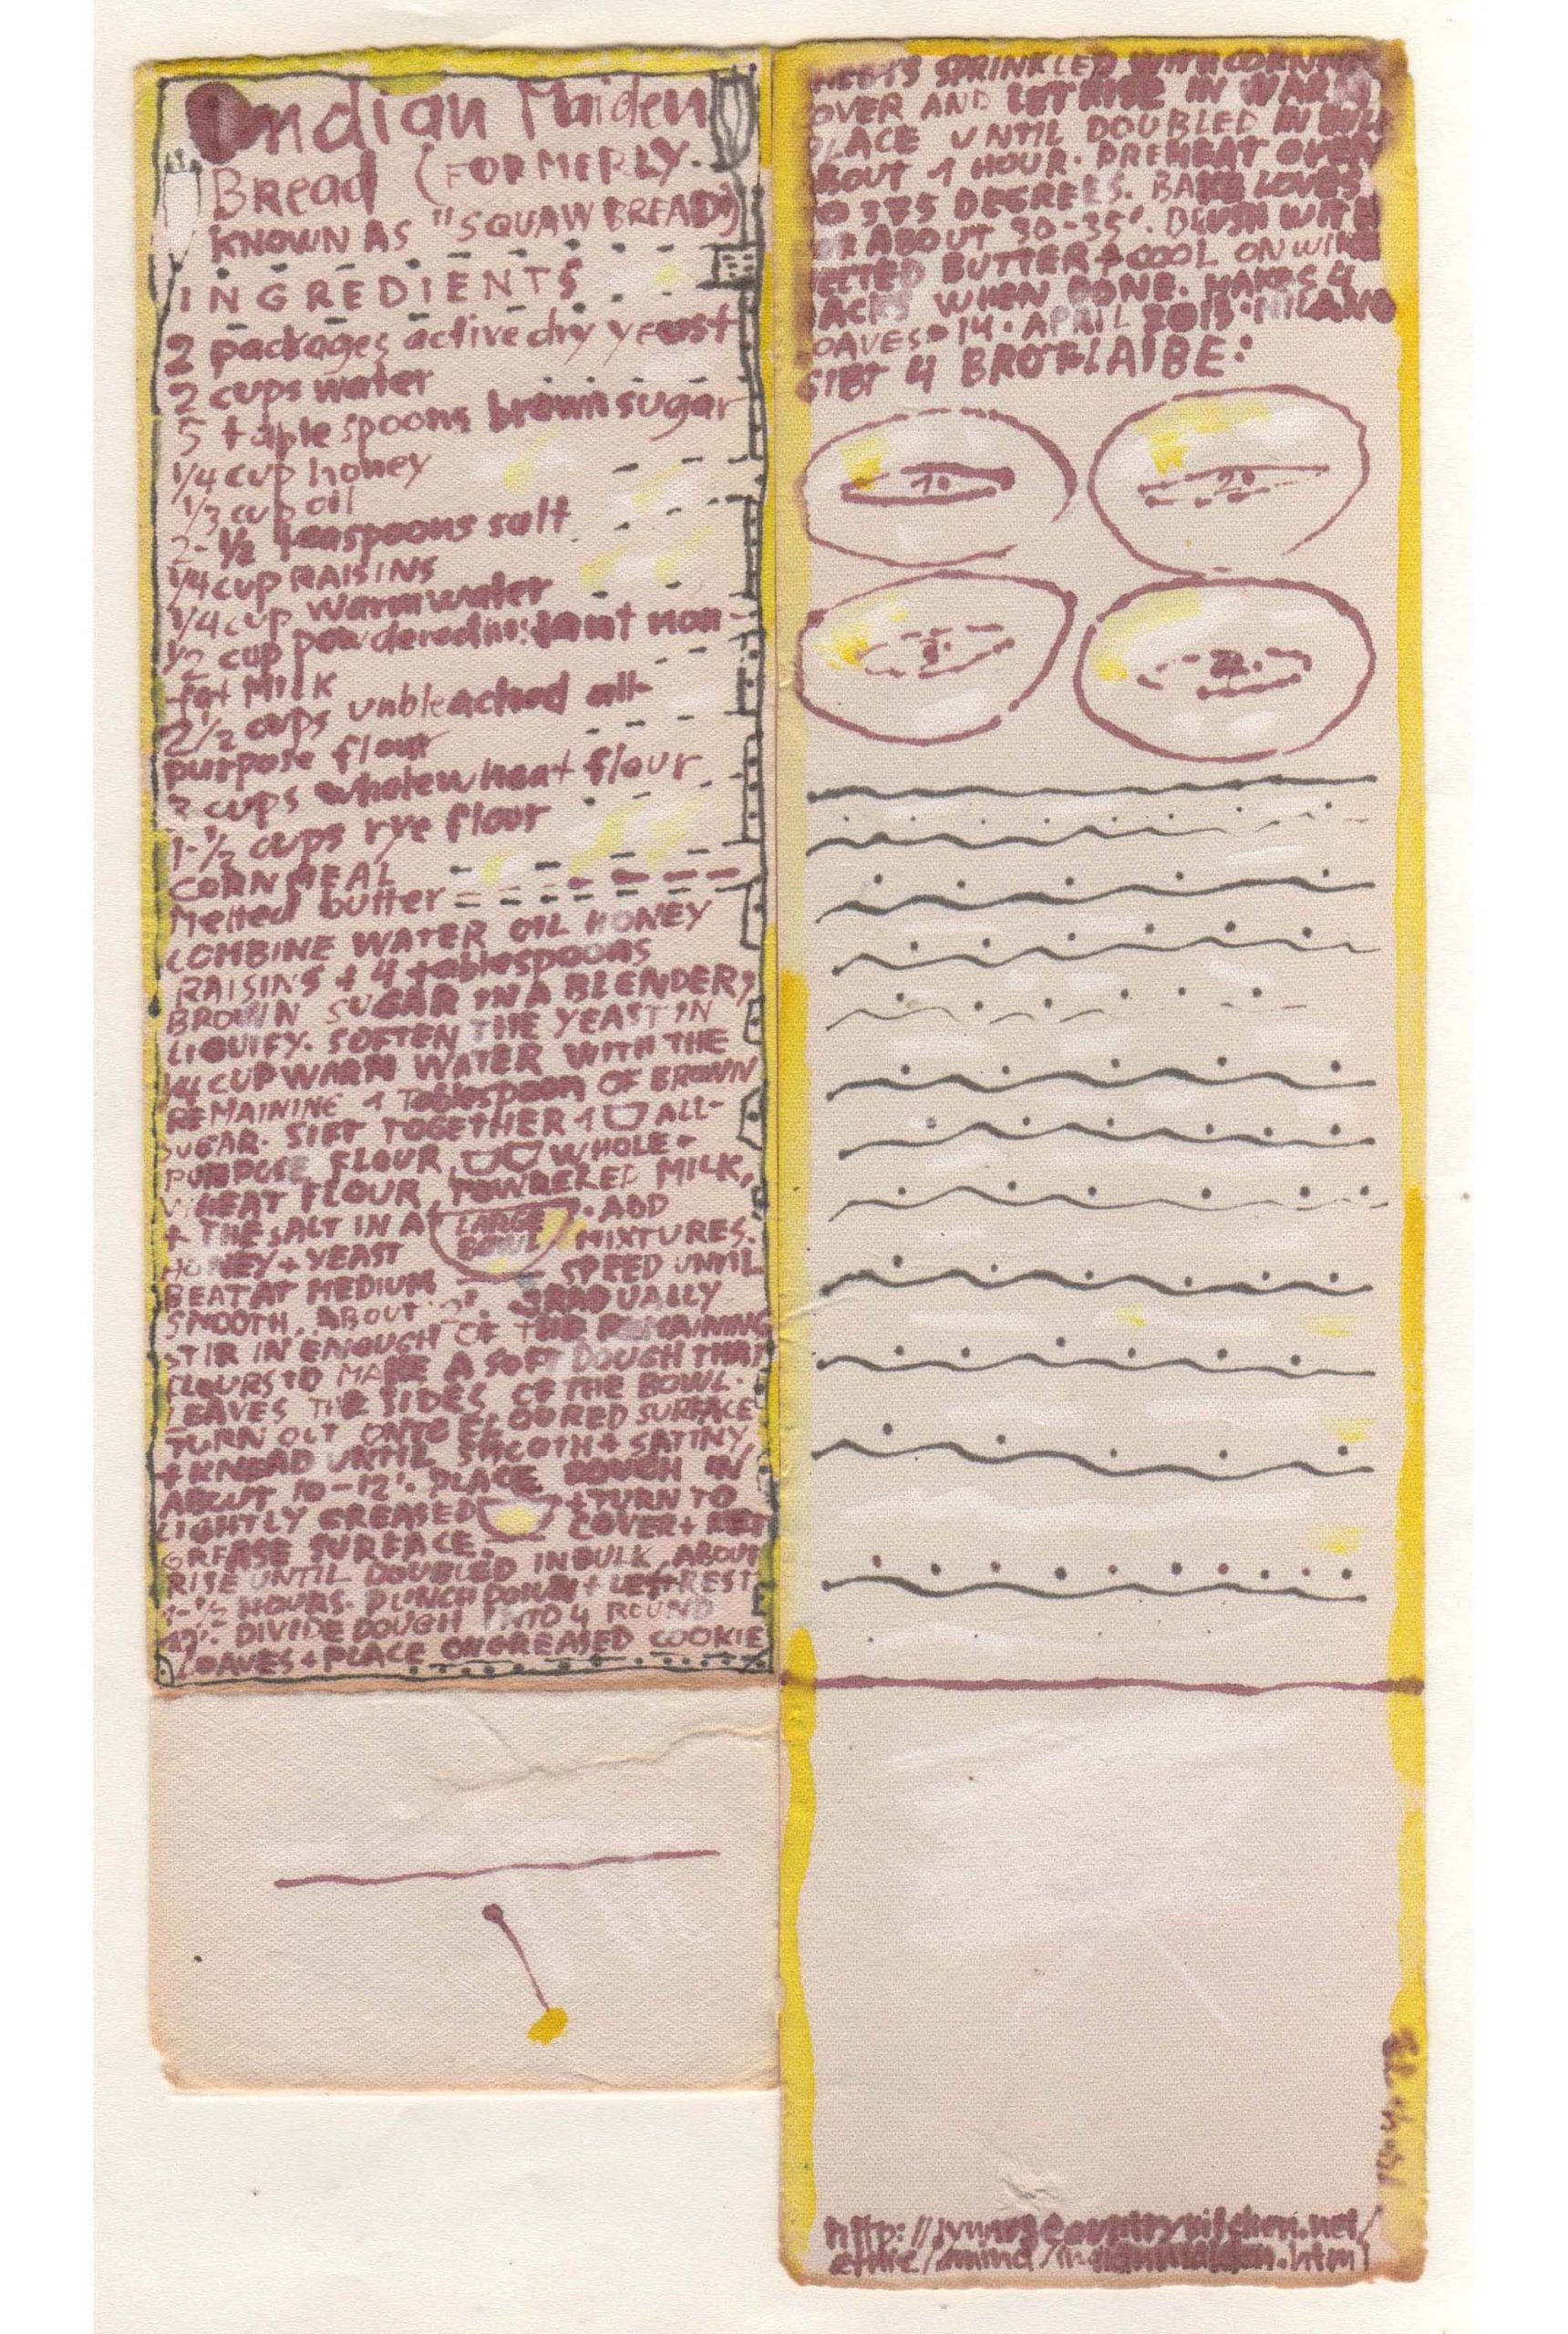 Indian Maiden
Bread (FORMERLY
KNOWN AS "SQUAW BREAD")
INGREDIENTS
2 packages active dry yeast
2 cups water
5 tablespoons brown sugar
1/4 cup honey
1/3 cup oil
2-1/2 teaspoons salt
1/4 CUP RAISINS
1/4 cup warm water
1/2 cup powdered instant non-
fat MILK
2 1/2 cups unbleached all-
purpose flour
3 cups wholewheat flour
1-1/2 cups rye flour
CORN MEAL
Melted butter
COMBINE WATER OIL HONEY
RAISINS + 4 tablespoons
BROWN SUGAR IN A BLENDER;
LIQUIFY. SOFTEN THE YEAST IN
1/4 CUP WARM WATER WITH THE
REMAINING 1 Tablespoon OF BROWN
SUGAR. SIFT TOGETHER 1 ALL-
PURPOSE FLOUR, WHOLE-
WHEAT FLOUR, POWDERED MILK,
+ THE SALT IN A LARGE BOWL. ADD
HONEY + YEAST MIXTURES.
BEAT AT MEDIUM SPEED UNTIL
SMOOTH, ABOUT 2'. GRADUALLY
STIR IN ENOUGH OF THE REMAINING
FLOURS TO MAKE A SOFT DOUGH THAT
LEAVES THE SIDES OF THE BOWL.
TURN OUT ONTO FLOURED SURFACE
+ KNEAD UNTIL SMOOTH + SATINY,
ABOUT 10-12'. PLACE DOUGH IN
LIGHTLY GREASED + TURN TO
GREASE SURFACE. COVER + LET
RISE UNTIL DOUBLED IN BULK, ABOUT
1-1/2 HOURS. PUNCH DOWN + LET REST
10'. DIVIDE DOUGH INTO 4 ROUND
LOAVES + PLACE ON GREASED COOKIE
HEETS SPRINKLED WITH CORNME
OVER AND LET RISE IN WARM
PLACE UNTIL DOUBLED IN BULK
BOUT 1 HOUR. PREHEAT OVEN
O 375 DEGREES. BAKE LOVES
OR ABOUT 30-35'. BRUSH WITH
ELTED BUTTER + COOL ON WIRE
RACKS WHEN DONE. MAKES 4
OAVES 14. APRIL 2015. MILANO
GIBT 4 BROTLAIBE:
1. 2.
3. 4.
http://lynnescountrykitchen.net/